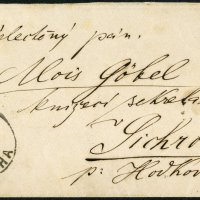 šlechtěný pán.
Alois Göbel
knížecí sekretá
v Sichro
p: Hodkov
HA